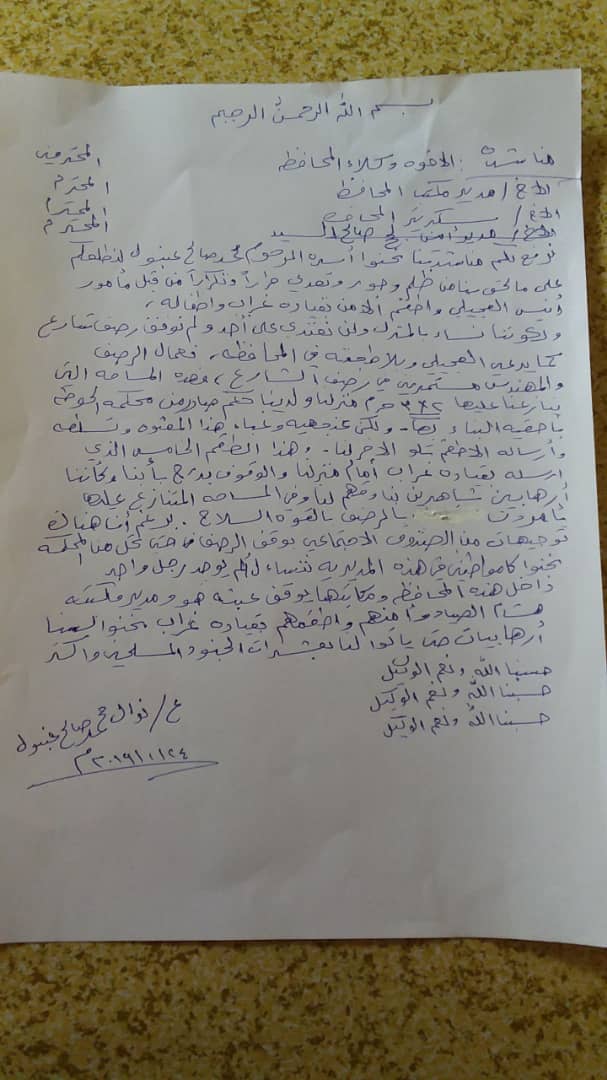 بسم الله الرحمن الرحيم
مناشدة : الاخوه وكلاء المحافظه المحترمين
الاخ / مدير مكتب المحافظ المحترم
الاخ / سكرتير المحافظ المحترم
الاخ / مدير أمن صالح السيد المحترم
نرفع لكم مناشدتنا نحنوا أسره المرحوم محمد صالح عبنول لنطلعكم
على مالحق بنا من ظلم وجور وتعدي مراراً وتكراراً من قبل مأمور
أنيس العجيلي واطقم الامن بقياده غراب واطفاله ،
ولكوننا نساء بالمنزل ولن نعتدي على أحد ولم نوقف رصف شارع
كما يدعي العجيلي وبلاطجته في المحافظه ، فعمال الرصف
والمهندس مستمرين في رصف الشارع ، فهذه المساحه التي
ينازعنا عليها حرم منزلنا ولدينا حكم صادر من محكمه الحوطه
بأحقيه البناء لها - ولكن عنجهيه وغباء هذا المعتوه وتسلطه
وأرساله الاطقم تلو الاخر لنا - وهذا الطقم الخامس الذي
ارسله بقياده غراب أمام منزلنا والوقوف بأننا وكأننا
أرهابيين شاهرين بنادقهم لنا وفي المساحه المتنازع عليها
يأمرون بالرصف بالقوه السلاح . لا علم أن هناك
توجيهات من الصندوق الاجتماعي بوقف الرصف حتى تحل من المحكمه
نحنوا كامواطني في هذه المديريه نتساءل ألم يوجد رجل واحد
داخل هذه المحافظه ومكاتبها يوقف عبثه هو ومدير مكتبه
هشام الصياد وأمنهم واطقمهم بقياده غراب نحنوا لسنا
أرهابيات حتى ياتوا لنا بعشرات الجنود المسلحين واكثر
حسبنا الله ونعم الوكيل
حسبنا الله ونعم الوكيل
حسبنا الله ونعم الوكيل
ع / نوال محمد صالح عبنول
٢٠١٩/١/٢٤م